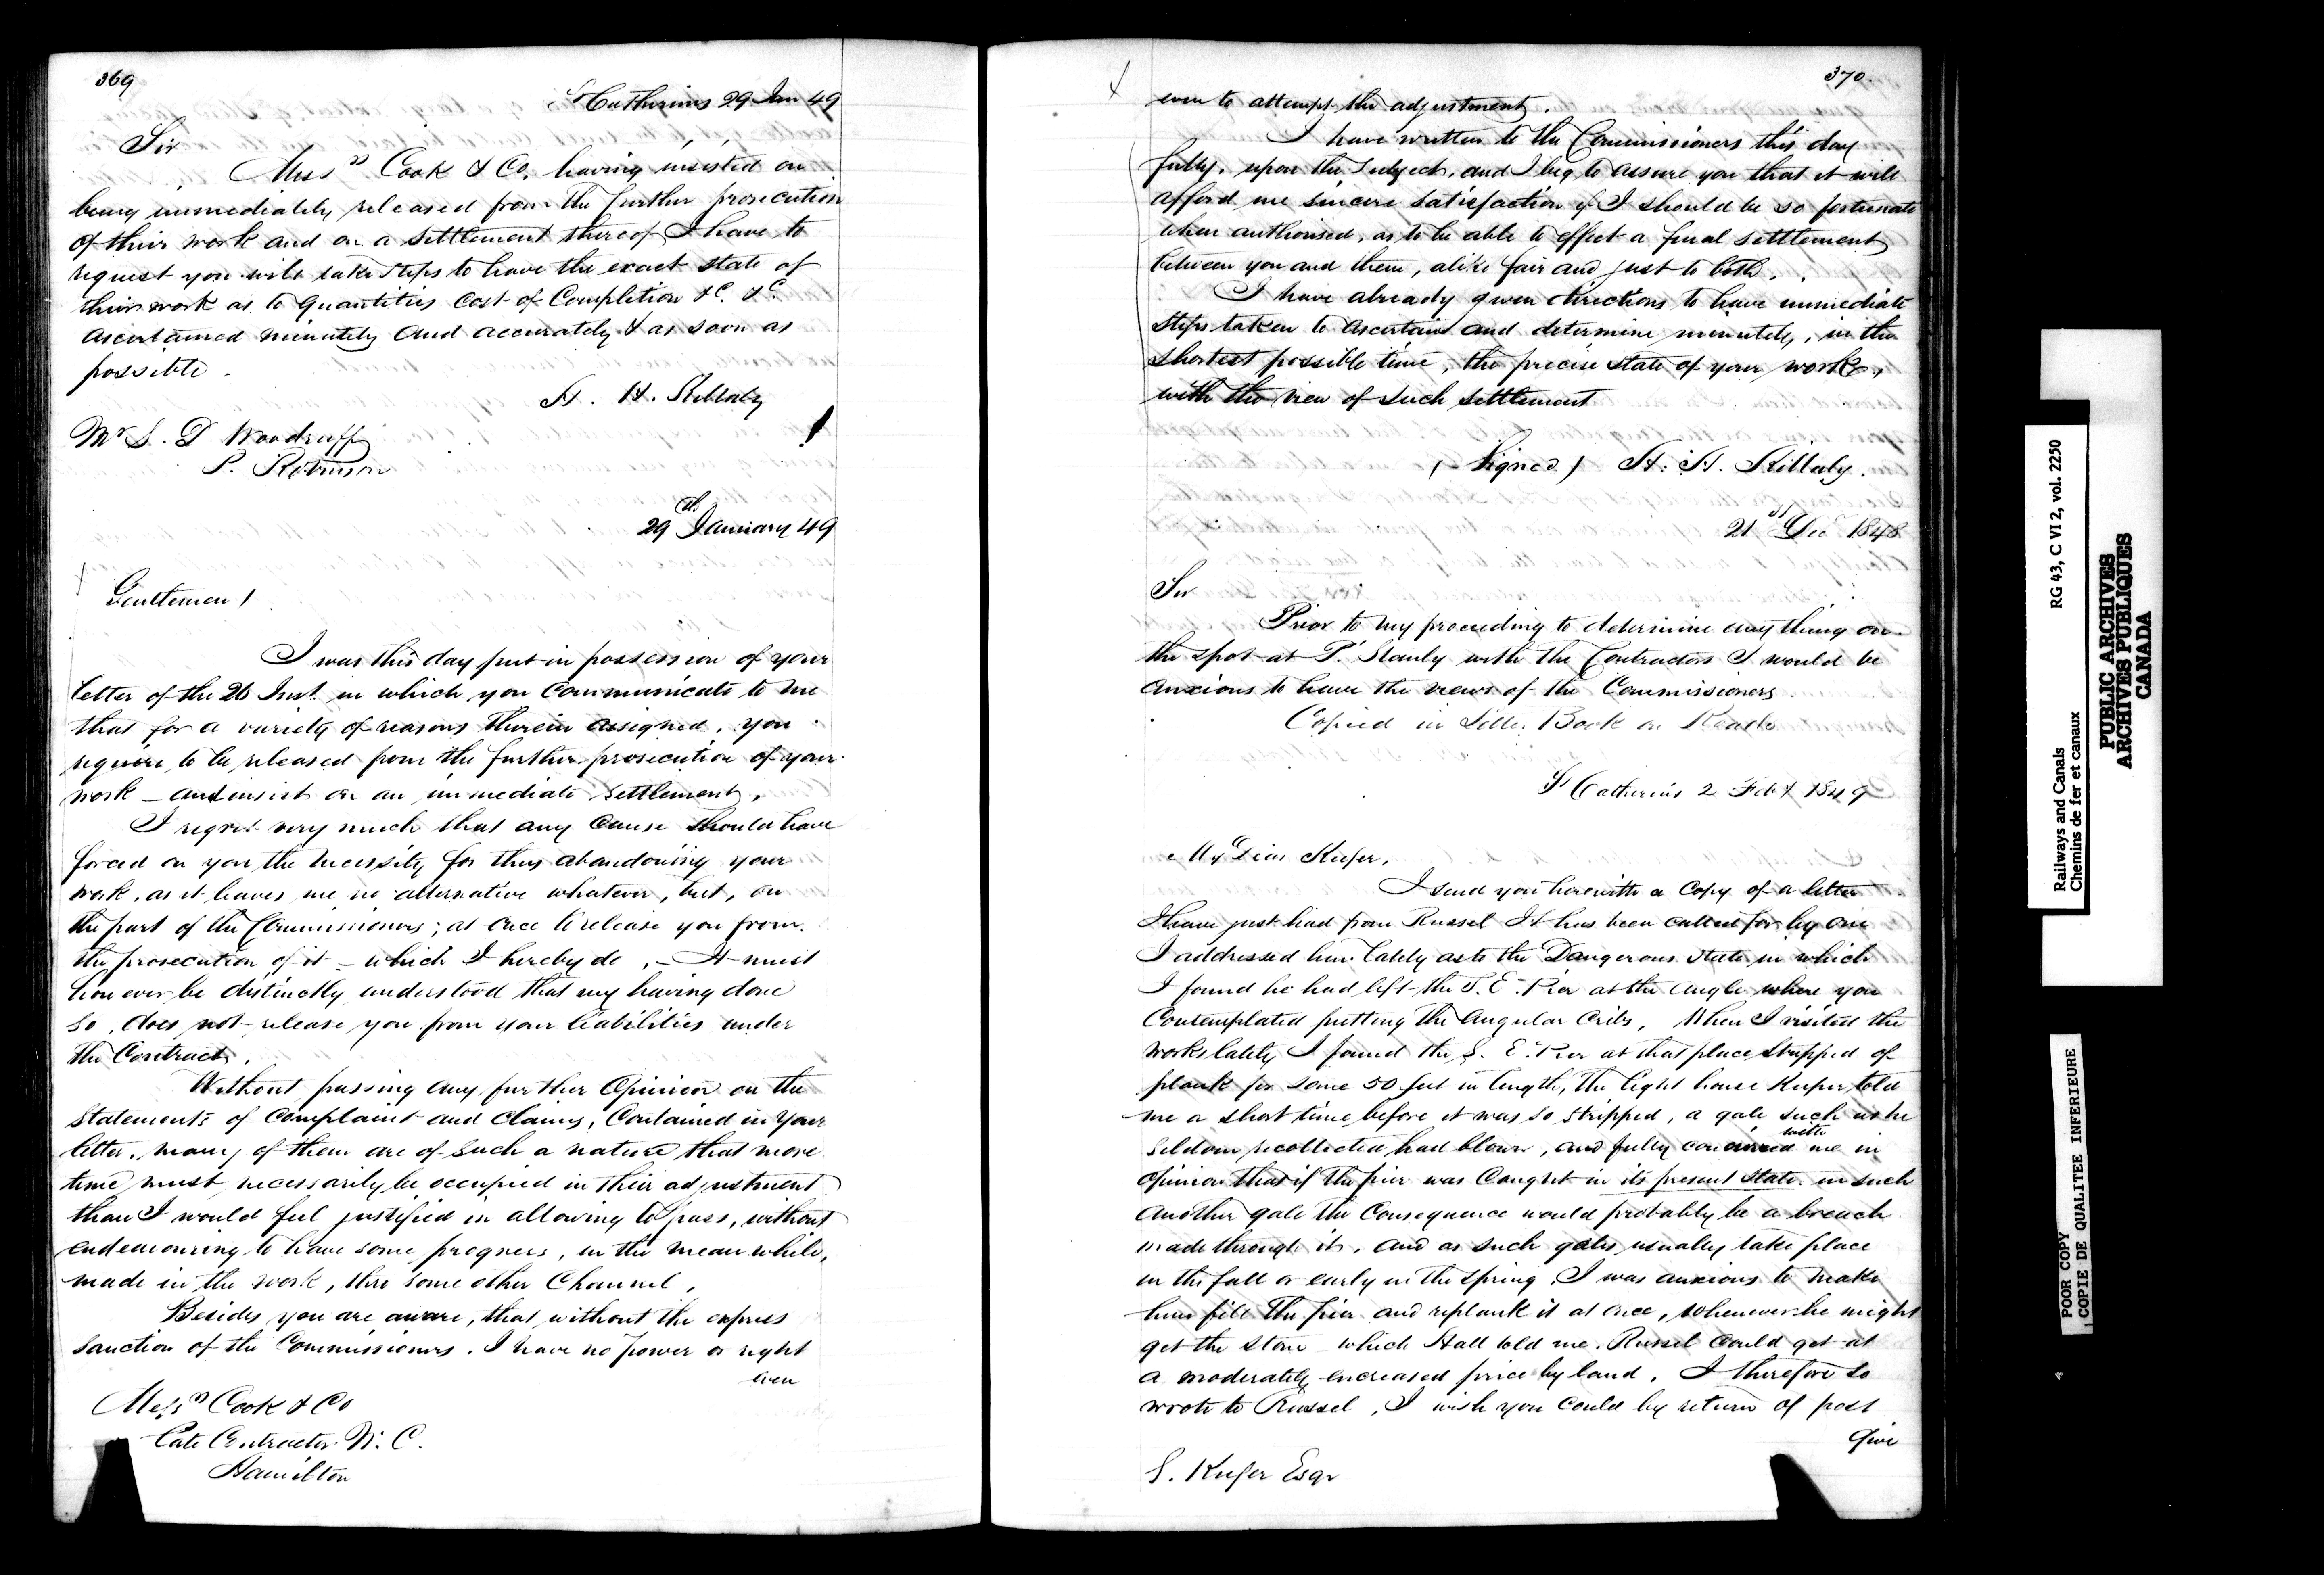 369
St Catherines 29 Jan 49
Sir
Messrs Cook & Co. having insisted on
being immediately released from the further prosecution
of their work and on a settlement thereof I have to
request you will take steps to have the exact state of
their work as to quantities cost of Completion &c. &c.
ascertained minutely and accurately & as soon as
possible.
H. H. Killaly
Mr S. D Woodruff
P. Robinson
29th January 49
Gentlemen /
I was this day put in possession of your
letter of the 26 Inst. in which you communicate to me
that for a variety of reasons therein assigned, you
require to be released from the further prosecution of your
work – and insist on an immediate settlement,
I regret very much that any cause should have
forced on you the necessity for thus abandoning your
work, as it leaves me no alternative whatever, but, on
the part of the Commissioners; at once to release you from
the prosecution of it – which I hereby do, – It must
however be distinctly understood that my having done
so, does not release you from your liabilities under
the Contract.
Without passing any further Opinion on the
Statements of Complaint and Claims, Contained in your
letter, many of them are of such a nature that more
time must necessarily be occupied in their adjustment
than I would feel justified in allowing to pass, without
endeavouring to have some progress, in the mean while,
made in the work, thro some other Channel,
Besides you are aware, that without the express
sanction of the Commissioners. I have no power or right
even
Messrs Cook & Co
Late Contractor W. C.
Hamilton
370.
even to attempt the adjustment.
I have written to the Commissioners this day
fully, upon the subject, and I beg to assure you that it will
afford me sincere satisfaction if I should be so fortunate
when authorised, as to be able to effect a final settlement
between you and them, alike fair and just to both.
I have already given directions to have immediate
steps taken to ascertain and determine minutely, in the
shortest possible time, the precise state of your works,
with the view of such settlement
(Signed) H. H. Killaly.
21st Dec 1848
Sir
Prior to my proceeding to determine any thing on
the spot at P. Stanly with the Contractors I would be
anxious to have the views of the Commissioners
Copied in Letter Book on Roads
St Catherines 2 Feby 1849
My Dear Keefer,
I send you herewith a Copy of a letter
I have just had from Russel It has been called for by one
I addressed him lately as to the Dangerous state in which
I found he had left the S. E. Pier at the angle where you
Contemplated putting the angular Cribs, When I visited the
works lately I found the S. E. Pier at that place stripped of
plank for some 50 feet in length, The light house Keeper told
me a short time before it was so stripped, a gale such as he
seldom recollected had blown, and fully concurred with me in
opinion that if the pier was Caught in its present state in such
another gale the Consequence would probably be a breach
made through it, and as such gales usually take place
in the fall or early in the spring I was anxious to make
him fill the pier and replank it at once, whenever he might
get the stone which Hall told me, Russel could get at
a moderately encreased price by land, I therefore so
wrote to Russel, I wish you could by return of post
Give
S. Keefer Esqr
RG 43, C VI 2, vol. 2250
Railways and Canals
Chemins de fer et canaux
PUBLIC ARCHIVES
ARCHIVES PUBLIQUES
CANADA
POOR COPY
COPIE DE QUALITEE INFERIEURE